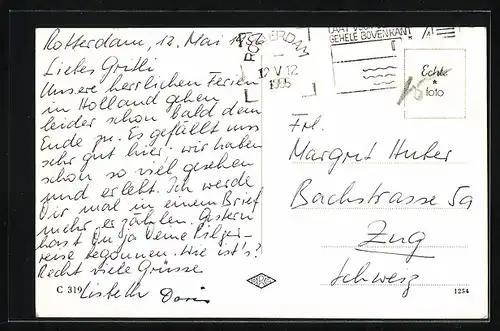 Rotterdam, 12. Mai 1956
Liebes Gritli
Unsere herrlichen Ferien
in Holland gehen
leider schon bald dem
Ende zu. Es gefällt uns
sehr gut hier, wir haben
schon so viel gesehen
und erlebt. Ich werde
Dir mal in einem Brief
mehr erzählen. Gestern
hast Du ja Deine Pilger-
reise begonnen. Wie ist's?
Recht viele Grüsse
Lisbeth
C 319
ROTTERDAM
12 V 12
GEHELE BOVENKANT
Echte
*
foto
Frl.
Margrit Huber
Bachstrasse 5a
Zug
Schweiz
1254